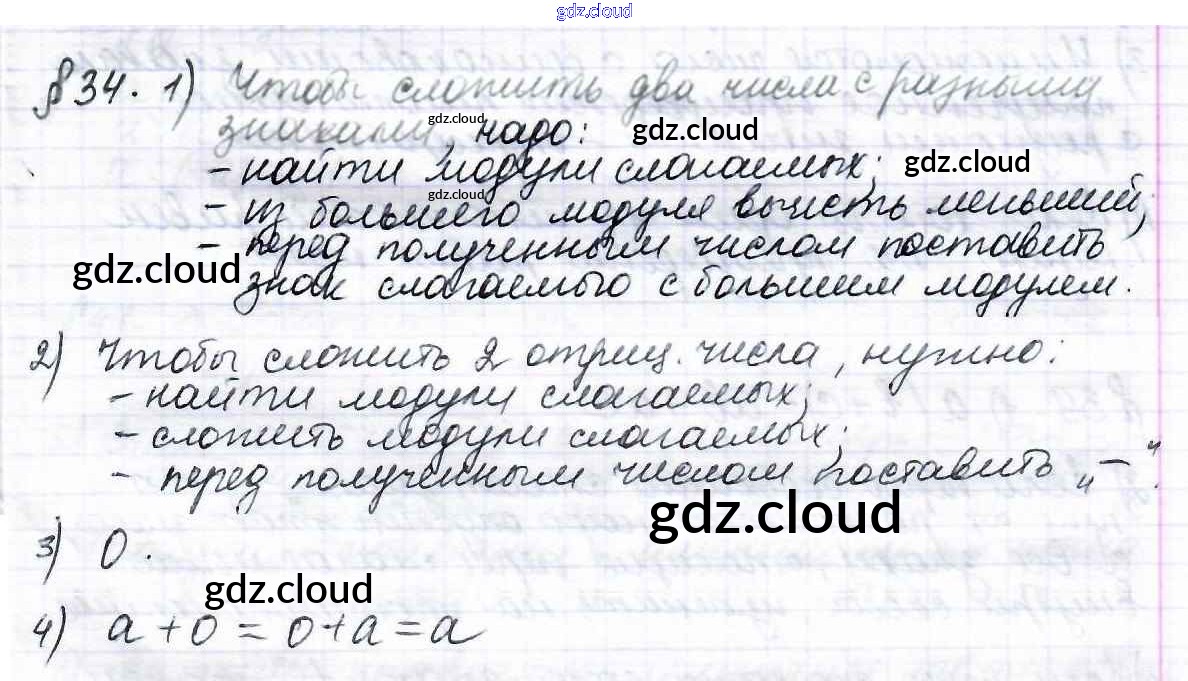 gdz.cloud
§34. 1) Чтобы сложить два числа с разными
знаками, надо:
gdz.cloud
gdz.cloud
- найти модули слагаемых;
gdz.cloud
gdz.cloud
- из большего модуля вычесть меньший;
- перед полученным числом поставить
gdz.cloud
знак слагаемого с большим модулем.
2) Чтобы сложить 2 отриц. числа, нужно:
- найти модули слагаемых;
- сложить модули слагаемых;
- перед полученным числом поставить „—“.
gdz.cloud
3) 0.
gdz.cloud
4) a + 0 = 0 + a = a